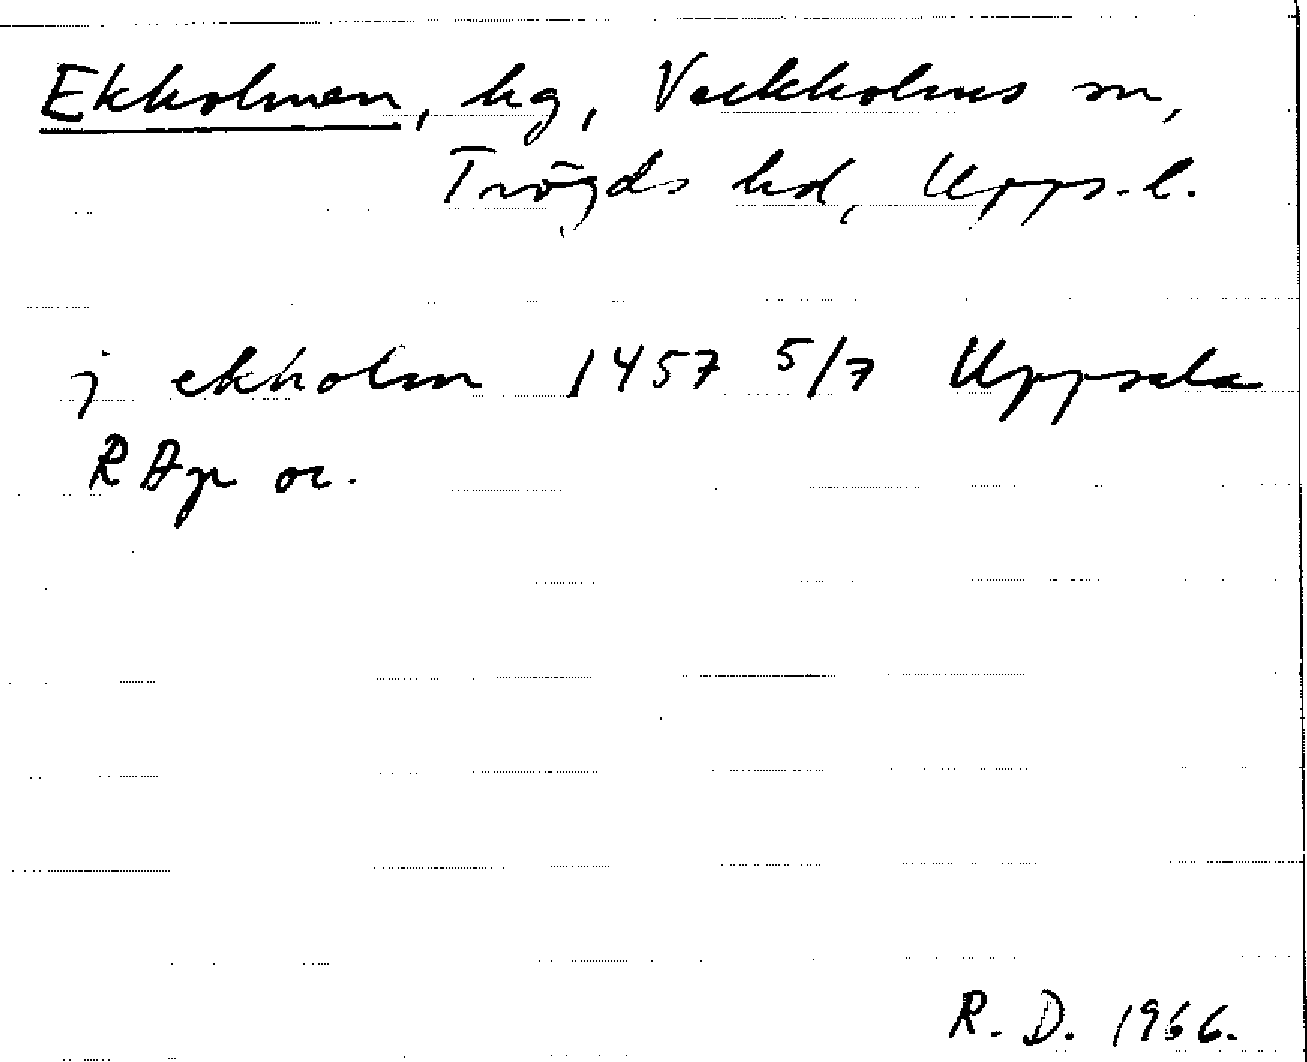 Ekholmen, hg, Veckholms sn,
Trögds hd, Upps. l.
j ekholm 1457 5/7 Uppsala
RAp or.
R. D. 1966.